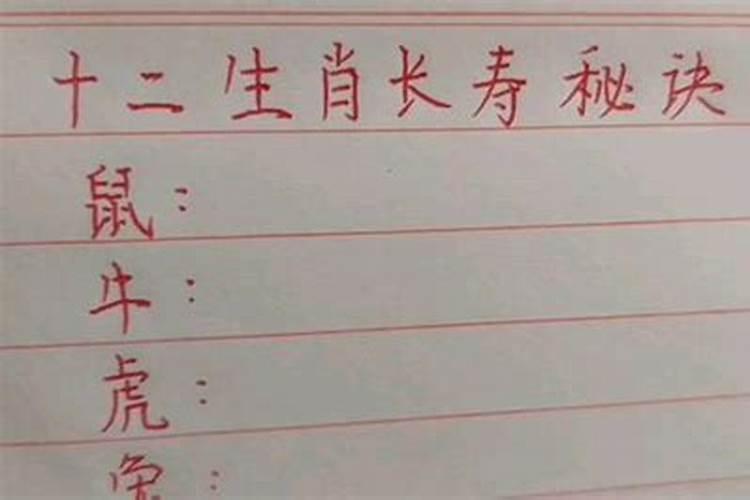 十二生肖长寿秘诀
鼠：
牛：
虎：
兔：